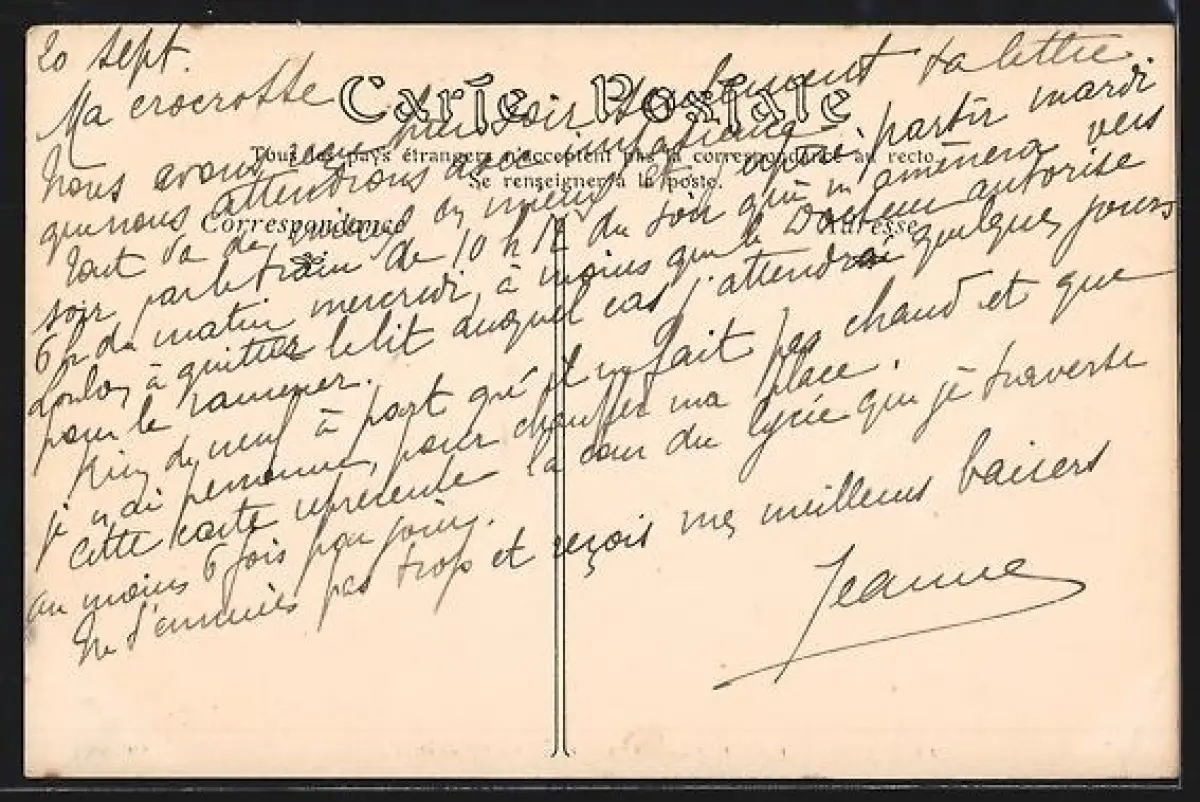 20 Sept.
Carte Postale
Tous les pays étrangers n'acceptent pas la correspondance au recto.
Se renseigner à la poste.
Correspondance
Adresse
Ma crocrotte
Nous avons hier soir seulement ta lettre
que nous attendions avec impatience.
Tout va de mieux en mieux et espère partir mardi
soir par le train de 10 h 12 du soir qui m'amènera vers
6 h du matin mercredi, à moins que le Docteur autorise
Loulou à quitter le lit auquel cas j'attendrai quelques jours
pour le ramener.
Rien de neuf à part qu'il ne fait pas chaud et que
je n'ai personne pour chauffer ma place.
Cette carte représente la cour du lycée que je traverse
au moins 6 fois par jour.
Ne t'ennuies pas trop et reçois mes meilleurs baisers
Jeanne